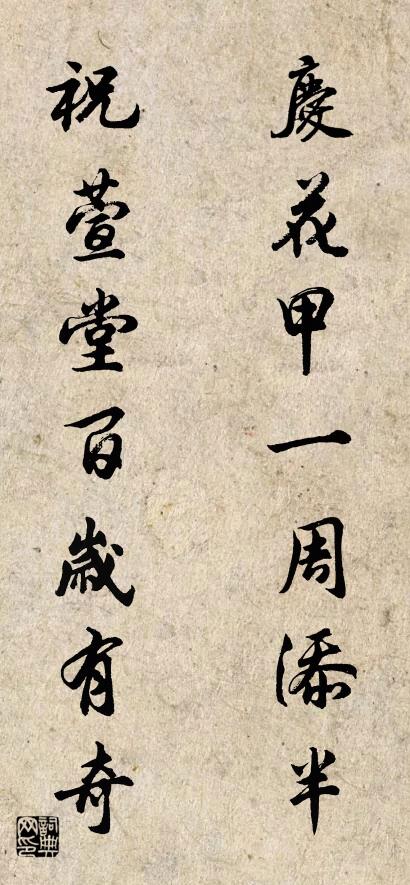 慶花甲一周添半
祝萱堂百歲有奇
詞典网印